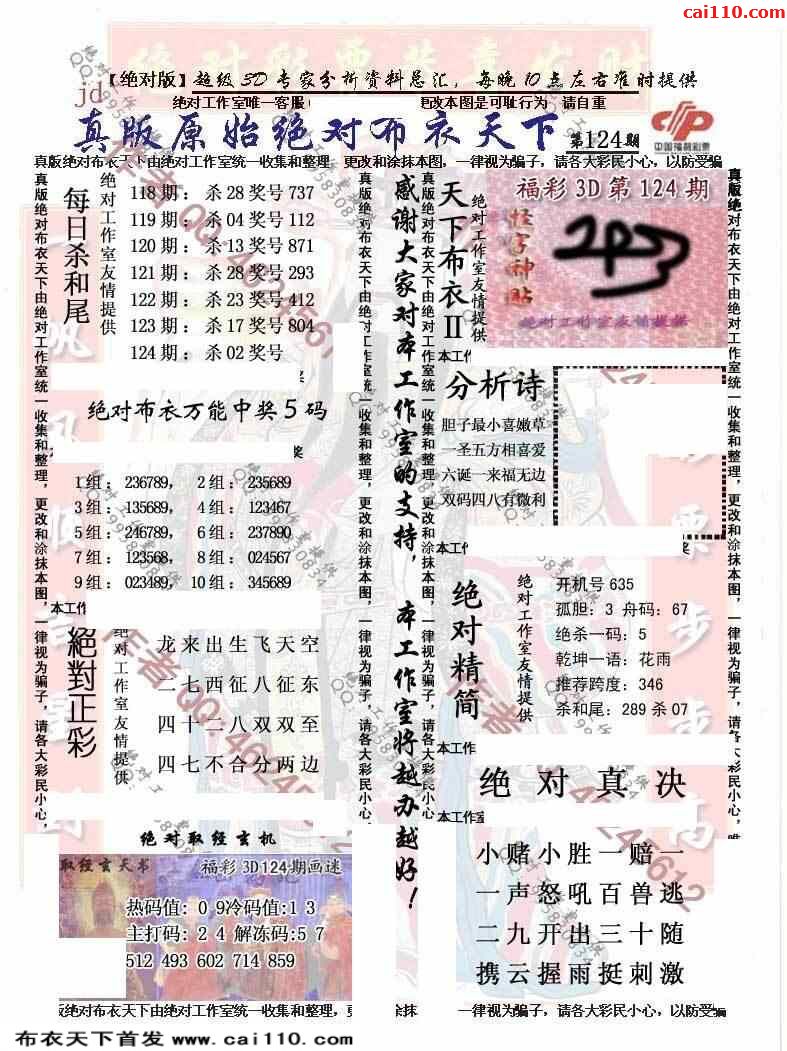 cai110.com
【绝对版】超级3D专家分析资料总汇，每晚10点左右准时提供
jd
绝对工作室唯一客服
更改本图是可耻行为 请自重
真版原始绝对布衣天下
第124期
中国福利彩票
真版绝对布衣天下由绝对工作室统一收集和整理 更改和涂抹本图，一律视为骗子，请各大彩民小心，以防受骗
真版绝对布衣天下由绝对工作室统一收集和整理，更改和涂抹本图，一律视为骗子，请各大彩民小心，
每日杀和尾
绝对工作室友情提供
118期：杀28奖号737
119期：杀04奖号112
120期：杀13奖号871
121期：杀28奖号293
122期：杀23奖号412
123期：杀17奖号804
124期：杀02奖号
绝对布衣万能中奖5码
1组：236789， 2组：235689
3组：135689， 4组：123467
5组：246789， 6组：237890
7组：123568， 8组：024567
9组：023489， 10组：345689
本工作
絕對正彩
绝对工作室友情提供
龙来出生飞天空
二七西征八征东
四十二八双双至
四七不合分两边
绝对取经玄机
取经玄天书
福彩3D124期画迷
热码值：0 9冷码值:1 3
主打码：2 4 解冻码:5 7
512 493 602 714 859
真版绝对布衣天下由绝对工作室统一收集和整理，更改和涂抹本图，一律视为骗子，请各大彩民小心，
感谢大家对本工作室的支持，本工作室将越办越好！
真版绝对布衣天下由绝对工作室统一收集和整理，更改和涂抹本图，一律视为骗子，请各大彩民小心，
天下布衣II
绝对工作室友情提供
福彩3D第124期
怪字神贴
绝对工作室友情提供
本工作
分析诗
胆子最小喜嫩草
一圣五方相喜爱
六诞一来福无边
双码四八有微利
本工作
绝对精简
绝对工作室友情提供
开机号635
孤胆：3 舟码：67
绝杀一码：5
乾坤一语：花雨
推荐跨度：346
杀和尾：289杀07
本工作
绝对真决
本工作室
小赌小胜一赔一
一声怒吼百兽逃
二九开出三十随
携云握雨挺刺激
真版绝对布衣天下由绝对工作室统一收集和整理，更改和涂抹本图，一律视为骗子，请各大彩民小心，
版绝对布衣天下由绝对工作室统一收集和整理，更
涂抹
一律视为骗子，请各大彩民小心，以防受骗
布衣天下首发 www.cai110.com